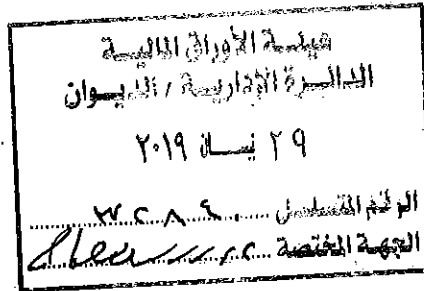 هيئة الأوراق المالية
الدائرة الإدارية / الديوان
٢٩ نيسان ٢٠١٩
الرقم المتسلسل
الجهة المختصة